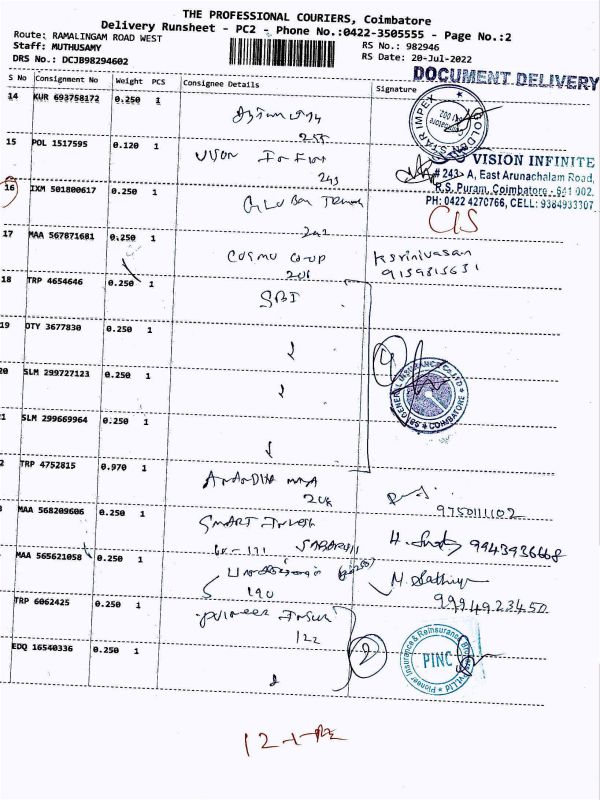 THE PROFESSIONAL COURIERS, Coimbatore
Delivery Runsheet - PC2 - Phone No.:0422-3505555 - Page No.:2
Route: RAMALINGAM ROAD WEST
RS No.: 982946
Staff: MUTHUSAMY
RS Date: 20-Jul-2022
DRS No.: DCJB98294602
DOCUMENT DELIVERY
S No Consignment No Weight PCS Consignee Details Signature
14 KUR 693758172 0.250 1
GOLDEN STAR IMPEX
255
15 POL 1517595 0.120 1
243
VISION INFINITE
# 243- A, East Arunachalam Road,
R.S. Puram, Coimbatore - 641 002.
PH: 0422 4270766, CELL: 9384933307
16 IXM 501800617 0.250 1
17 MAA 567871681 0.250 1 COSMO CO-OP Ksrinivasan
206 9159815631
18 TRP 4654646 0.250 1 SBI
19 OTY 3677830 0.250 1
20 SLM 299727123 0.250 1
SBI GENERAL INSURANCE CO. LTD COIMBATORE
SLM 299669964 0.250 1
TRP 4752815 0.970 1
208 9750111102
MAA 568209606 0.250 1 SMART
9943936668
MAA 565621058 0.250 1
190 M. Sathiya
9994923450
TRP 6062425 0.250 1 pioneer Insur
122
EDQ 16540336 0.250 1 2
Pioneer Insurance & Reinsurance Brokers Pvt Ltd
PINC